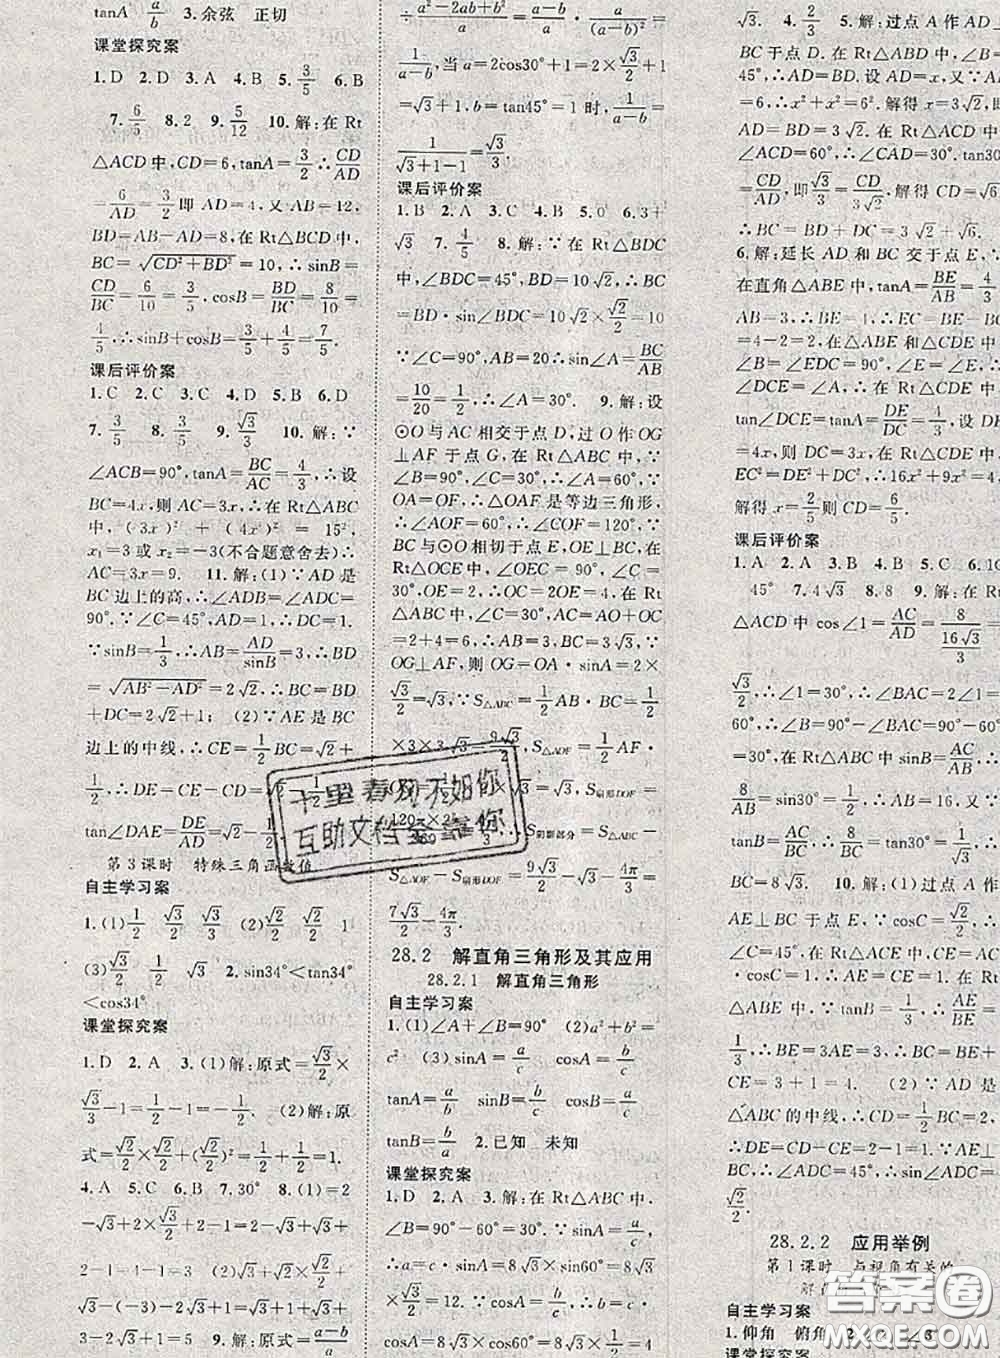 tanA a/b 3.余弦 正切
课堂探究案
1.D 2.D 3.A 4.B 5.3/5 6.B
7.6/5 8.2 9.5/12 10.解:在Rt
△ACD中,CD=6,tanA=3/2∴CD/AD
=6/AD=3/2即AD=4,又AB=12,
BD=AB-AD=8,在Rt△BCD中,
BC=√(CD²+BD²)=10,∴sinB=
CD/BC=6/10=3/5,cosB=BD/BC=8/10=
4/5,∴sinB+cosB=3/5+4/5=7/5.
课后评价案
1.C 2.C 3.C 4.D 5.B 6.D
7.3/5 8.3/5 9.√3/3 10.解:∵
∠ACB=90°,tanA=BC/AC=4/3,∴设
BC=4x,则AC=3x,在Rt△ABC
中,(3x)²+(4x)²=15²,
x₁=3或x₂=-3(不合题意舍去)∴
AC=3x=9. 11.解:(1)∵AD是
BC边上的高,∴∠ADB=∠ADC=
90°.∵∠C=45°,AD=1,∴DC=1.
∵sinB=1/3,∴AB=AD/sinB=3,∴BD
=√(AB²-AD²)=2√2,∴BC=BD
+DC=2√2+1; (2)∵AE是BC
边上的中线,∴CE=1/2BC=√2+
tan∠DAE=DE/AD=√2-1/2.
第3课时 特殊三角函数值
自主学习案
1.(1)1/2 √3/2 √3/3 (2)√2/2 √2/2 1
(3)√3/2 1/2 √3 2.sin34°<tan34°
<cos34°
课堂探究案
1.D 2.A 3.(1)解:原式=√3/2×
√3/3-1=1/2-1=-1/2. (2)解:原
式=√2/2×√2/2+(√2/2)²=1/2+1/2=1.
4.A 5.C 6.B 7.30° 8.(1)=2
-√3+2×√3/2-√3=2-√3+√3-√3
=2-√3 (2)=3-√3+2×√2/2×
-√3+2×√3/2+1=3-√3+√2×
3-2√3+1=5 9.解:原式=a-b/a
÷a²-2ab+b²/a=a-b/a·a/(a-b)²=
1/a-b,当a=2cos30°+1=2×√3/2+1=
√3+1,b=tan45°=1时,1/a-b=
1/√3+1-1=√3/3
课后评价案
1.B 2.A 3.C 4.B 5.0 6.3+
√3 7.4/5 8.解:∵在Rt△BDC
中,∠BDC=45°,BD=10√2,∴BC
=BD·sin∠BDC=10√2×√2/2=10
∵∠C=90°,AB=20∴sin∠A=BC/AB
=10/20=1/2,∴∠A=30° 9.解:设
⊙O与AC相交于点D,过O作OG
⊥AF于点G,在Rt△ABC中,∵
∠B=90°,∠C=30°,∴∠A=60°,∵
OA=OF,∴△OAF是等边三角形,
∴∠AOF=60°,∴∠COF=120°,∵
BC与⊙O相切于点E,OE⊥BC,在
Rt△OCE中,∠OEC=90°,∠C=
30°,OE=2,∴OC=2OE=4,在Rt
△ABC中,∠C=30°,AC=AO+OC
=2+4=6,∴AB=3,BC=3√3,∵
OG⊥AF,则OG=OA·sin∠A=2×
√3/2=√3,∵S△ABC=1/2AB·BC=1/2
×3×3√3=9√3/2,S△AOF=1/2AF·
S△AOF-S扇形DOF=9√3/2-√3-4π/3=
7√3/2-4π/3.
28.2 解直角三角形及其应用
28.2.1 解直角三角形
自主学习案
1.(1)∠A+∠B=90° (2)a²+b²=
c² (3)sinA=a/c cosA=b/c
tanA=a/b sinB=b/c cosB=a/c
tanB=b/a 2.已知 未知
课堂探究案
1.D 2.A 3.解:在Rt△ABC中,
∠B=90°-60°=30°.∵sinA=a/c,
∴a=c·sinA=8√3×sin60°=8√3×
√3/2=12.∵cosA=b/c,∴b=c·
cosA=8√3×cos60°=8√3×1/2=4
4.2/3 5.解:过点A作AD⊥
BC于点D.在Rt△ABD中,∠B=
45°,∴AD=BD.设AD=x,又∵AB
=6,∴x²+x²=6².解得x=3√2,即
AD=BD=3√2.在Rt△ACD中,
∠ACD=60°,∴∠CAD=30°.tan30°
=CD/AD,即√3/3=CD/3√2.解得CD=√6
∴BC=BD+DC=3√2+√6.
6.解:延长AD和BC交于点E,∵
在直角△ABE中,tanA=BE/AB=4/3
AB=3,∴BE=4,∴EC=BE-BC
=4-2=2,∵
∠B=∠EDC=90°,∴
∠DCE=∠A,∴在Rt△CDE中
tan∠DCE=DE/DC=4/3,∴设DE
=4x,则DC=3x,在Rt△CDE中
EC²=DE²+DC²,∴16x²+9x²=4
解得x=2/5则CD=6/5.
课后评价案
1.A 2.A 3.B 4.B 5.C
45° 7.4√3 8.8 9.解:在Rt
△ACD中cos∠1=AC/AD=8/16√3/3
√3/2,∴∠1=30°,∴∠BAC=2∠1=
60°,∴∠B=90°-∠BAC=90°-60°
=30°,在Rt△ABC中sinB=AC/AB
8/AB=sin30°=1/2,∴AB=16
tanB=AC/BC=8/BC=tan30°=√3/3
∴BC=8√3. 10.解:(1)过点A作
AE⊥BC于点E,∵cosC=√2/2
∠C=45°,在Rt△ACE中,CE=AC
·cosC=1,∴AE=CE=1.在Rt
△ABE中,∵tanB=1/3,∴AE/BE=
1/3,∴BE=3AE=3,∴BC=BE+
CE=3+1=4. (2)∵AD是
△ABC的中线,∴CD=1/2BC=2,
∴DE=CD-CE=2-1=1.∵AE⊥
BC,∴∠ADC=45°,∴sin∠ADC=
√2/2.
28.2.2 应用举例
第1课时 与视角有关的
自主学习案
1.仰角 俯角
课堂探究案
十里春风不如你
互助文档全靠你
答案圈
MXQE.COM